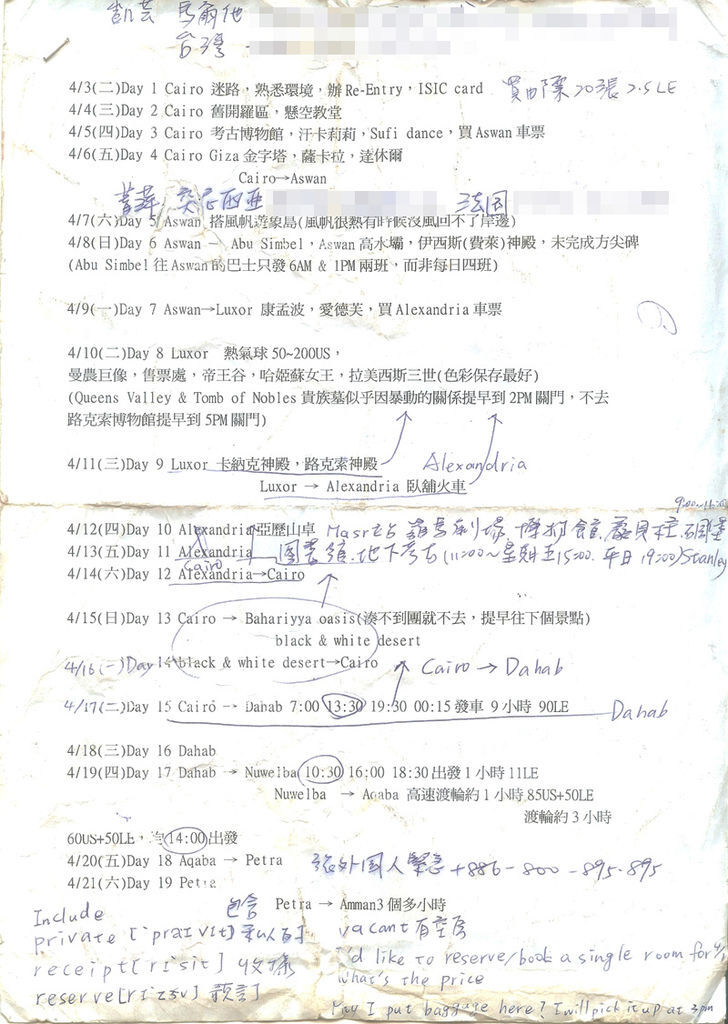 凱芸 馬爾他
台灣
4/3(二)Day 1 Cairo 迷路，熟悉環境，辦Re-Entry，ISIC card 買郵票20張 2.5LE
4/4(三)Day 2 Cairo 舊開羅區，懸空教堂
4/5(四)Day 3 Cairo 考古博物館，汗卡莉莉，Sufi dance，買Aswan車票
4/6(五)Day 4 Cairo Giza金字塔，薩卡拉，達休爾
Cairo→Aswan
突尼西亞 法国
4/7(六)Day 5 Aswan 搭風帆遊象島(風帆很熱有時候沒風回不了岸邊)
4/8(日)Day 6 Aswan － Abu Simbel，Aswan高水壩，伊西斯(費萊)神殿，未完成方尖碑
(Abu Simbel往Aswan的巴士只發6AM & 1PM兩班，而非每日四班)
4/9(一)Day 7 Aswan→Luxor 康孟波，愛德芙，買Alexandria車票
4/10(二)Day 8 Luxor 熱氣球 50~200US，
曼農巨像，售票處，帝王谷，哈姬蘇女王，拉美西斯三世(色彩保存最好)
(Queens Valley & Tomb of Nobles貴族墓似乎因暴動的關係提早到2PM關門，不去
路克索博物館提早到5PM關門)
4/11(三)Day 9 Luxor 卡納克神殿，路克索神殿 Alexandria
Luxor → Alexandria 臥舖火車
4/12(四)Day 10 Alexandria 亞歷山卓 Masr站 羅馬劇場.博物館.龐貝柱.碉堡
4/13(五)Day 11 Alexandria 圖書館.地下考古(11:00～星期五15:00.平日19:00)Stanley
Cairo
4/14(六)Day 12 Alexandria→Cairo
4/15(日)Day 13 Cairo → Bahariyya oasis(湊不到團就不去，提早往下個景點)
black & white desert
4/16(一)Day 14 black & white desert→Cairo Cairo → Dahab
4/17(二)Day 15 Cairo → Dahab 7:00 13:30 19:30 00:15發車 9小時 90LE Dahab
4/18(三)Day 16 Dahab
4/19(四)Day 17 Dahab → Nuweiba 10:30 16:00 18:30出發1小時11LE
Nuweiba → Aqaba 高速渡輪約1小時85US+50LE
渡輪約3小時
60US+50LE， 14:00出發
4/20(五)Day 18 Aqaba → Petra 外国人緊急 +886-800-895-895
4/21(六)Day 19 Petra
Petra → Amman3個多小時
Include 包含
private [ˋpraɪvɪt] 私人的 vacant 有空房
receipt[rɪsit] 收據 I'd like to reserve/book a single room for
reserve[rɪzɜv] 預訂 what's the price
May I put baggage here? I will pick it up at 3pm